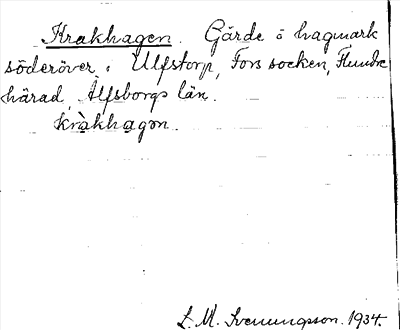 Krakhagen. Gärde o hagmark
söderöver i Ulfstorp, Fors socken, Flundre
härad, Älfsborgs län.
kràkhagən.
L. M. Svenungsson. 1934.